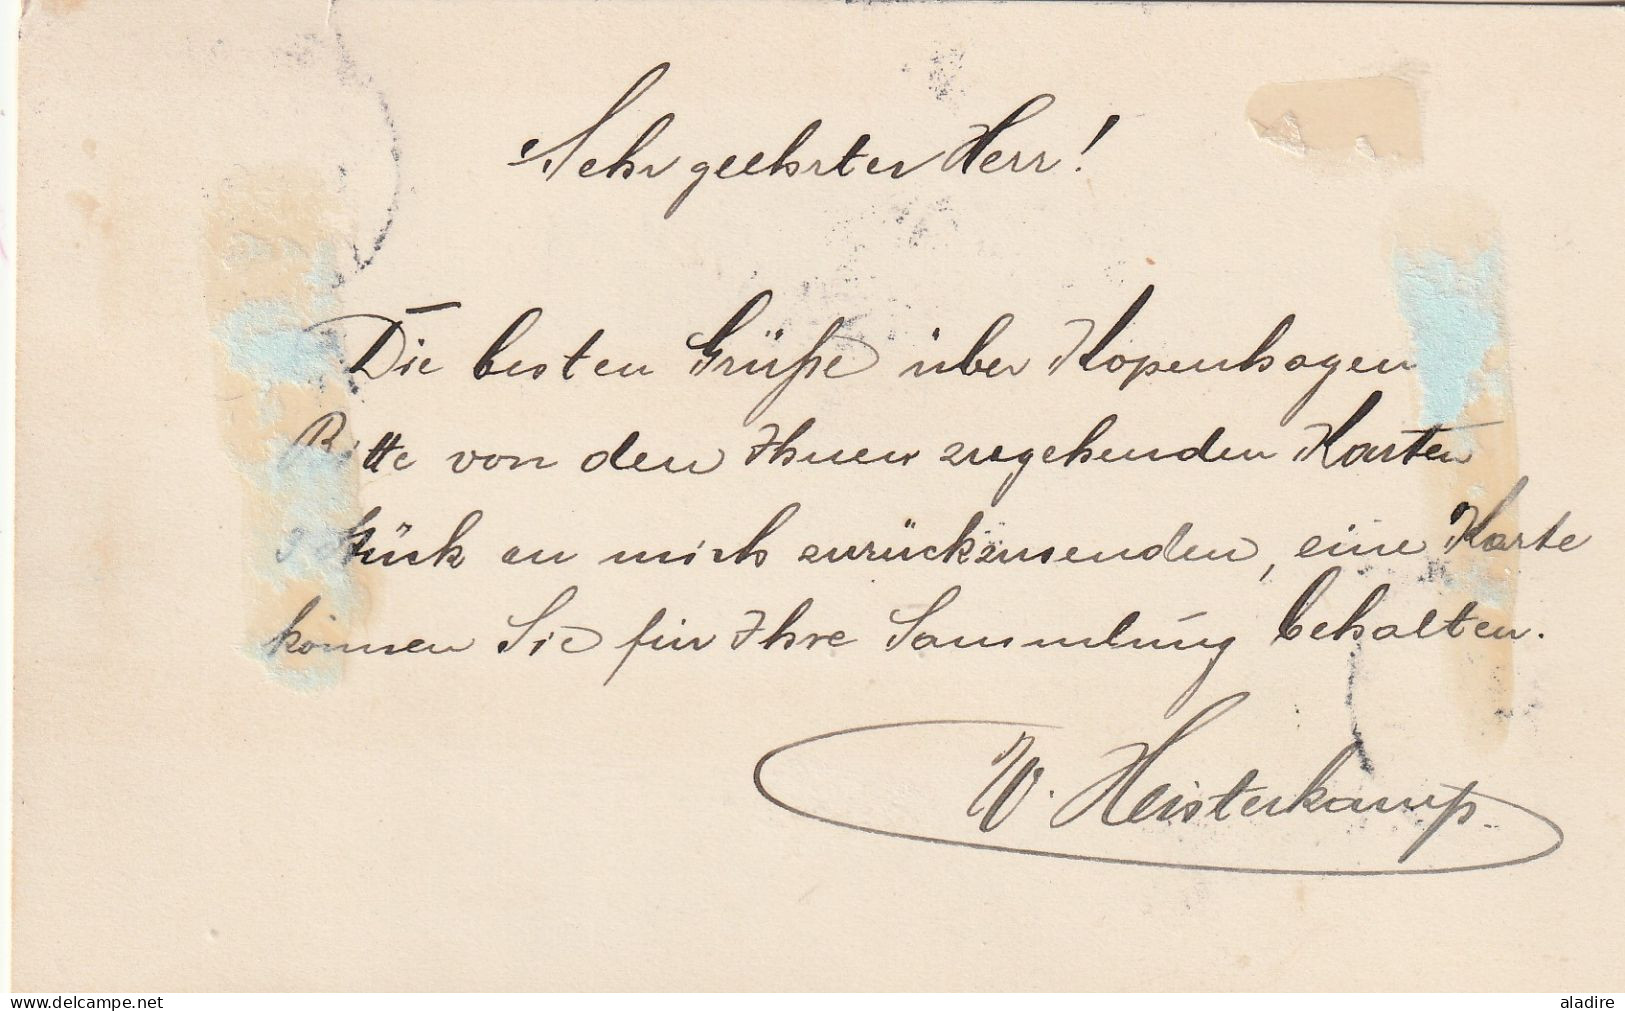 Sehr geehrter Herr!
Die besten Grüße über Kopenhagen
Bitte von den Ihnen zugehenden Karten
3 Stück an mich zurückzusenden, eine Karte
können Sie für Ihre Sammlung behalten.
W. Heisterkamp.
www.delcampe.net
aladire